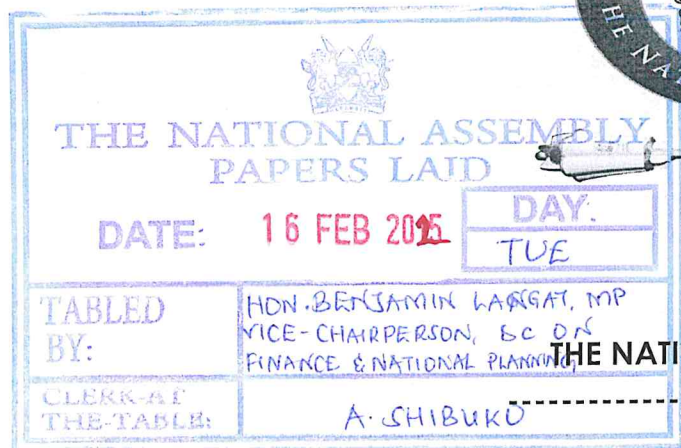 THE NAT
THE NATIONAL ASSEMBLY
PAPERS LAID
DATE: 16 FEB 2015 DAY:
TUE
TABLED BY: HON. BENJAMIN LANGAT, MP
VICE-CHAIRPERSON, ON
FINANCE & NATIONAL PLANNING
THE NATI
CLERK-AT
THE-TABLE: A. SHIBUKO